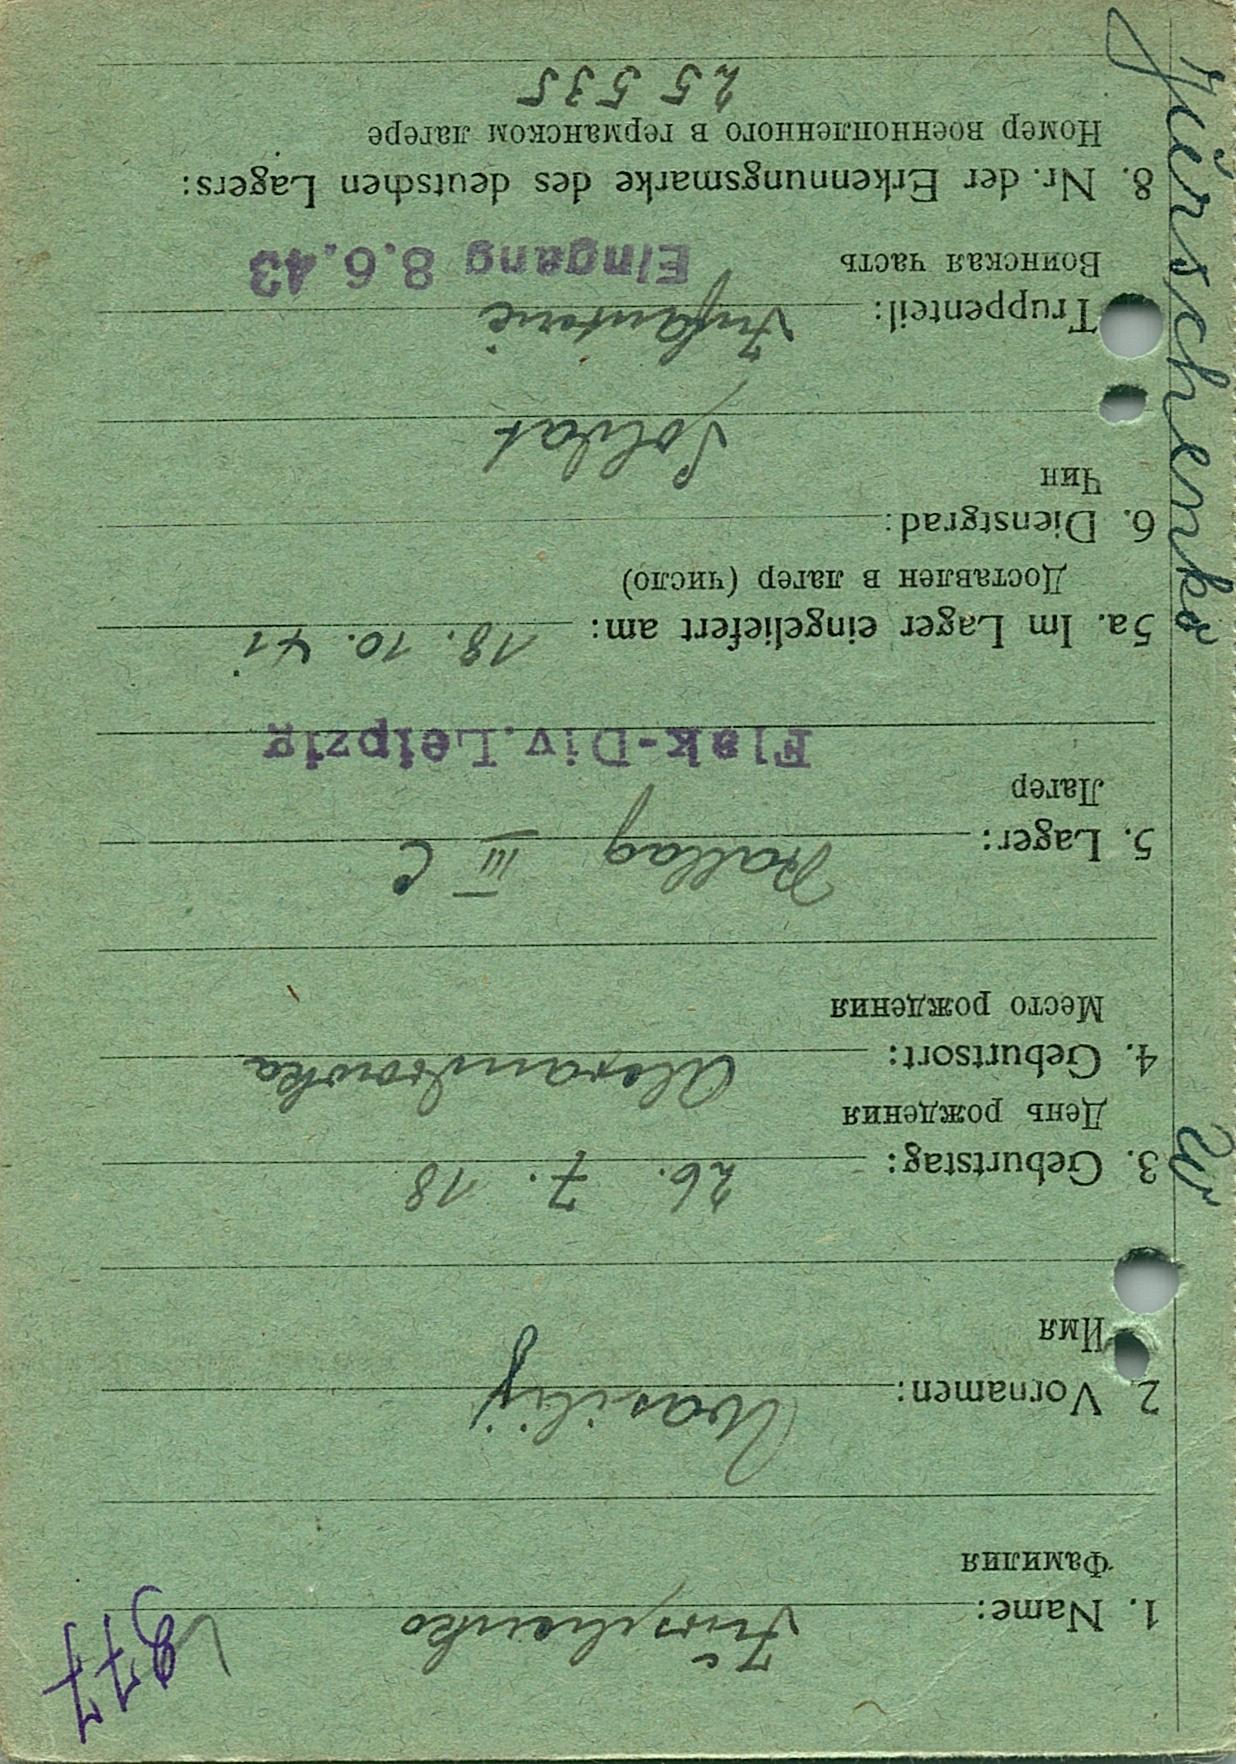 877
1. Name: Jürschenko
Фамилия
2. Vornamen: Wasilij
Имя
3. Geburtstag: 26. 7. 18
День рождения
4. Geburtsort: Alexandrowka
Место рождения
5. Lager: Stallag III C
Лагер
Flak-Div. Leipzig
5a. Im Lager eingeliefert am: 18. 10. 41
Доставлен в лагер (число)
6. Dienstgrad:
Чин
Soldat
Truppenteil: Infanterie
Воинская часть
Eingang 8.6.43
8. Nr. der Erkennungsmarke des deutschen Lagers:
Номер военнопленного в германском лагере
25 535
Jürschenko W